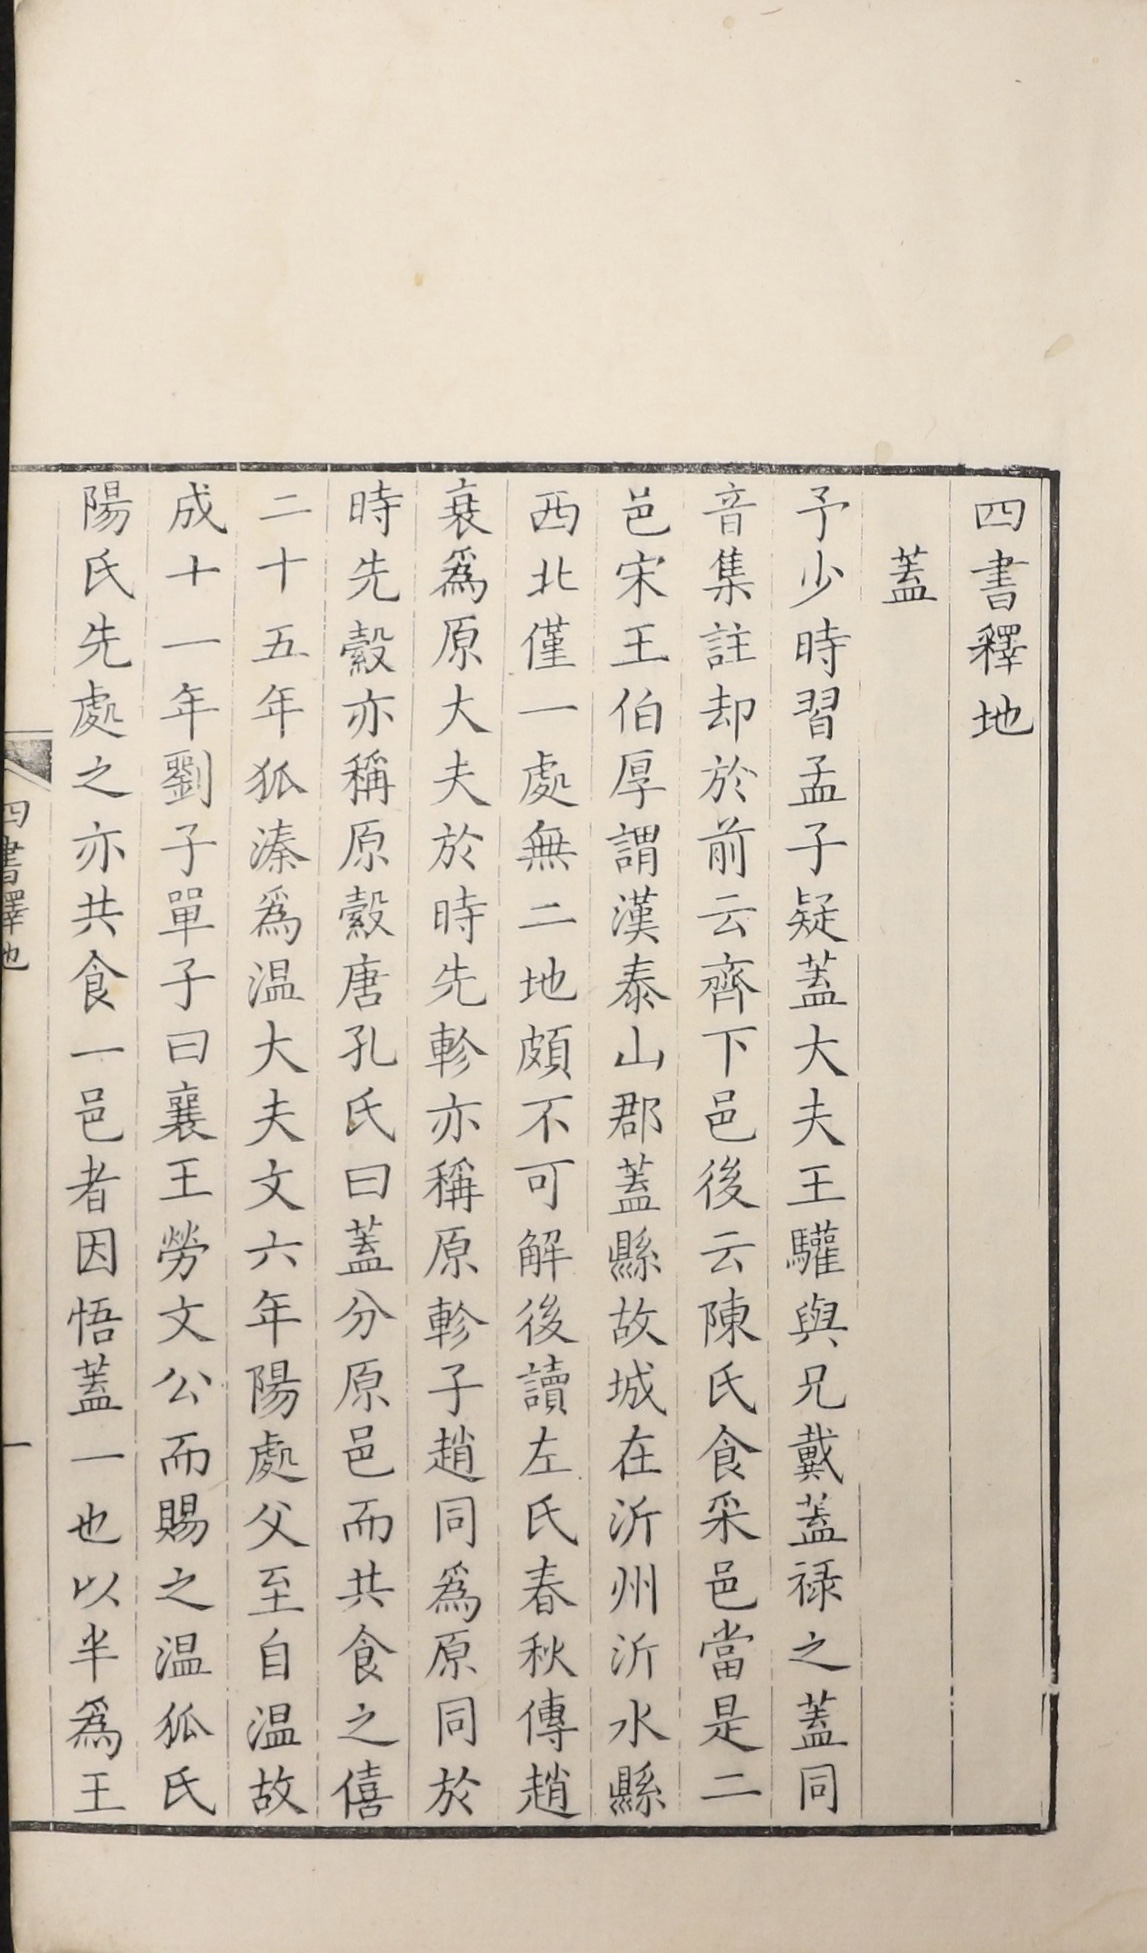 四書釋地
蓋
予少時習孟子疑蓋大夫王驩與兄戴蓋祿之蓋同
音集註却於前云齊下邑後云陳氏食采邑當是二
邑宋王伯厚謂漢泰山郡蓋縣故城在沂州沂水縣
西北僅一處無二地頗不可解後讀左氏春秋傳趙
衰爲原大夫於時先軫亦稱原軫子趙同爲原同於
時先縠亦稱原縠唐孔氏曰蓋分原邑而共食之僖
二十五年狐溱爲温大夫文六年陽處父至自温故
成十一年劉子單子曰襄王勞文公而賜之温狐氏
陽氏先處之亦共食一邑者因悟蓋一也以半爲王
四書釋地
一